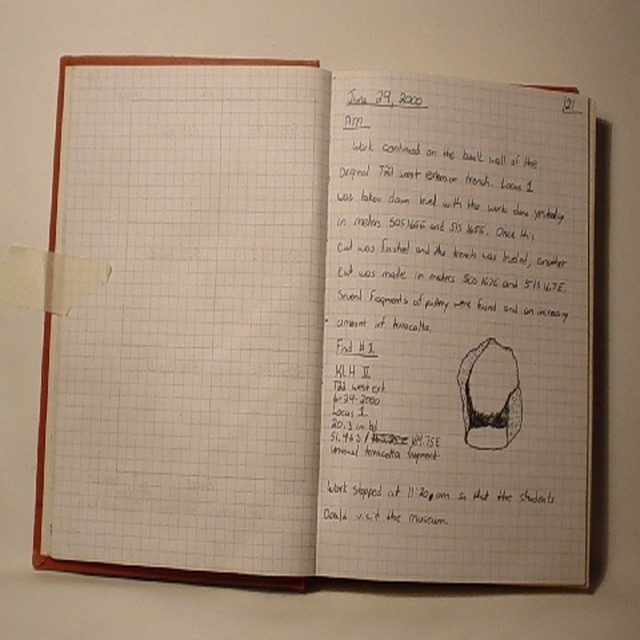 June 29, 2000
21
AM
Work continued on the baulk wall of the
original T22 west extension trench. Locus 1
was taken down level with the work done yesterday
in meters 50S 165E and 51S 165E. Once this
cut was finished and the trench was leveled, another
cut was made in meters 50S 167E and 51S 167E.
Several fragments of pottery were found and an increasing
amount of terracotta.
Find #1
KLH II
T22 west ext
6-29-2000
Locus 1
20.3 m bd
51.46S / 164.75E
Unusual terracotta fragment
Work stopped at 11:20 am so that the students
could visit the museum.